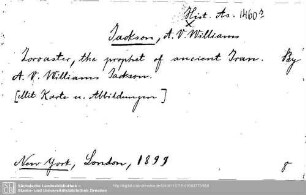 Hist. As. 1460
Jackson, A. V. Williams
Zoroaster, the prophet of ancient Iran. By
A. V. Williams Jackson.
[Mit Karte u. Abbildungen]
New York, London, 1899
8
Sächsische Landesbibliothek -
Staats- und Universitätsbibliothek Dresden